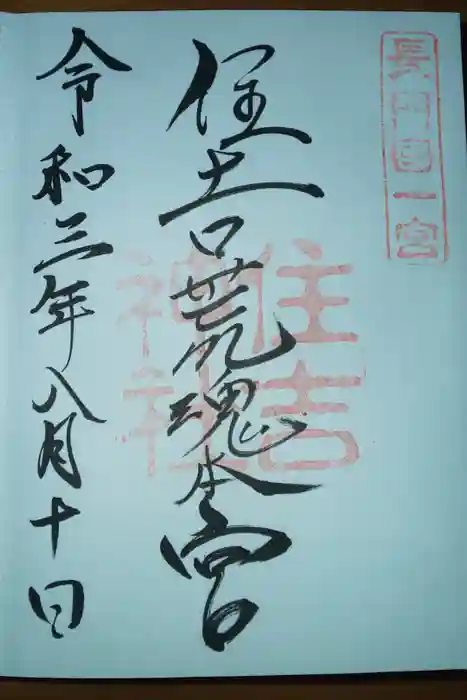 長門国一宮
住吉荒魂本宮
住吉
神社
令和三年八月十日